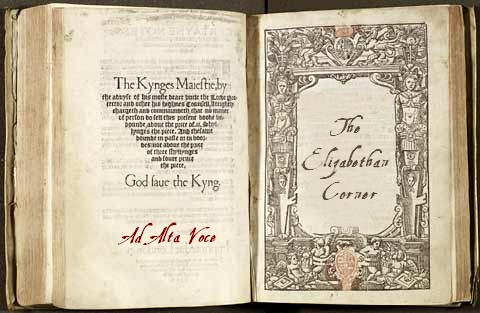 The Kynges Maiestie, by
the aduyse of his moste deare vncle the Lord pro
tector and other his highnes Counsell, streightly
chargeth and commaundeth, that no maner
of person do sell this present booke vn
bounde, aboue the price of .ii. Shyl
lynges the piece. And the same
bounde in paste or in boor
des not aboue the price
of three shyllynges
and foure pence
the piece.
God saue the Kyng.
Ad Alta Voce
The
Elizabethan
Corner